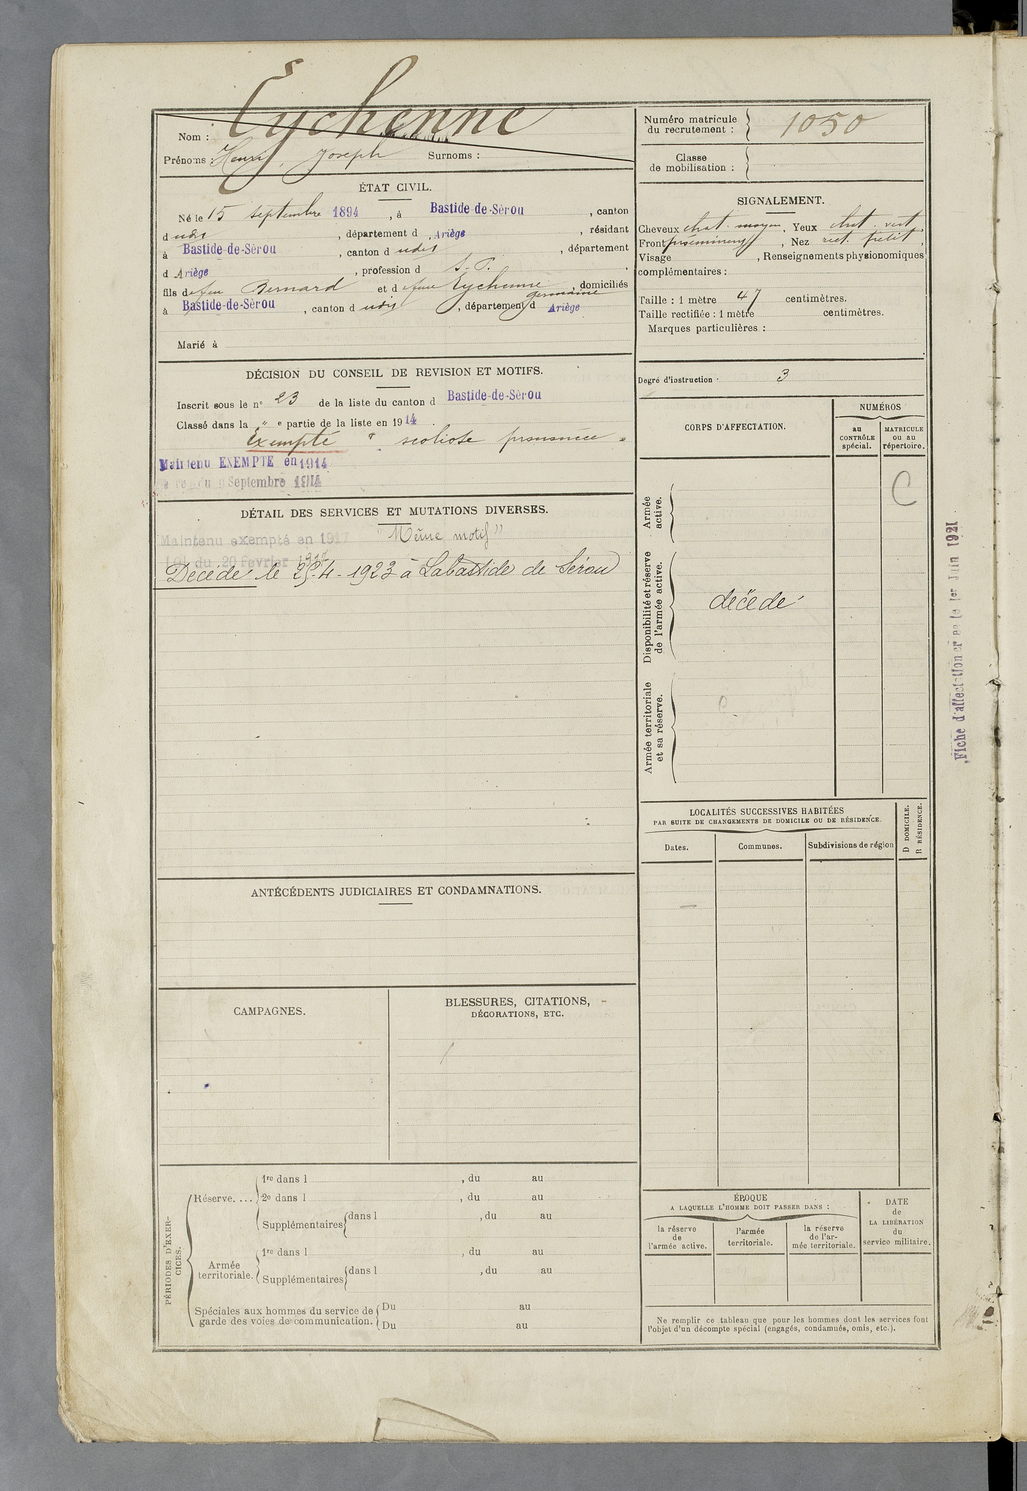 Eychenne
Nom :
Prénoms : Henri, Joseph Surnoms :
ÉTAT CIVIL.
Né le 15 septembre 1894, à Bastide-de-Sérou, canton
d udit, département d Ariège, résidant
à Bastide-de-Sérou, canton d udit, département
d Ariège, profession d S. P.
fils de feu Bernard et de feue Eychenne germaine, domiciliés
à Bastide-de-Sérou, canton d udit, département d Ariège
Marié à
DÉCISION DU CONSEIL DE REVISION ET MOTIFS.
Inscrit sous le n° 23 de la liste du canton d Bastide-de-Sérou
Classé dans la " e partie de la liste en 1914
Exempté scoliose prononcée
Maintenu EXEMPTÉ en 1914
Septembre 1914
DÉTAIL DES SERVICES ET MUTATIONS DIVERSES.
Maintenu exempté en 1917 "Même motif"
Loi du 20 février 1917
Décédé le 25-4-1923 à Labastide de Sérou
ANTÉCÉDENTS JUDICIAIRES ET CONDAMNATIONS.
CAMPAGNES.
BLESSURES, CITATIONS,
DÉCORATIONS, ETC.
PÉRIODES D'EXERCICES.
Réserve....
1re dans l , du au
2e dans l , du au
Supplémentaires dans l , du au
Armée territoriale.
1re dans l , du au
Supplémentaires dans l , du au
Spéciales aux hommes du service de
garde des voies de communication.
Du au
Du au
Numéro matricule
du recrutement : 1050
Classe
de mobilisation :
SIGNALEMENT.
Cheveux chat. moyen, Yeux chat. vert,
Front proéminent, Nez rect. petit,
Visage , Renseignements physionomiques
complémentaires :
Taille : 1 mètre 47 centimètres.
Taille rectifiée : 1 mètre centimètres.
Marques particulières :
Degré d'instruction : 3
CORPS D'AFFECTATION.
NUMÉROS
au
CONTRÔLE
spécial.
MATRICULE
OU AU
répertoire.
Armée
active.
C
Disponibilité et réserve
de l'armée active.
décédé
Armée territoriale
et sa réserve.
LOCALITÉS SUCCESSIVES HABITÉES
PAR SUITE DE CHANGEMENTS DE DOMICILE OU DE RÉSIDENCE.
D DOMICILE.
R RÉSIDENCE.
Dates.
Communes.
Subdivisions de région
ÉPOQUE
A LAQUELLE L'HOMME DOIT PASSER DANS :
la réserve
de
l'armée active.
l'armée
territoriale.
la réserve
de l'ar-
mée territoriale.
DATE
de
LA LIBÉRATION
du
service militaire.
Ne remplir ce tableau que pour les hommes dont les services font
l'objet d'un décompte spécial (engagés, condamnés, omis, etc.).
Fiche d'affectation 1er Juin 1921